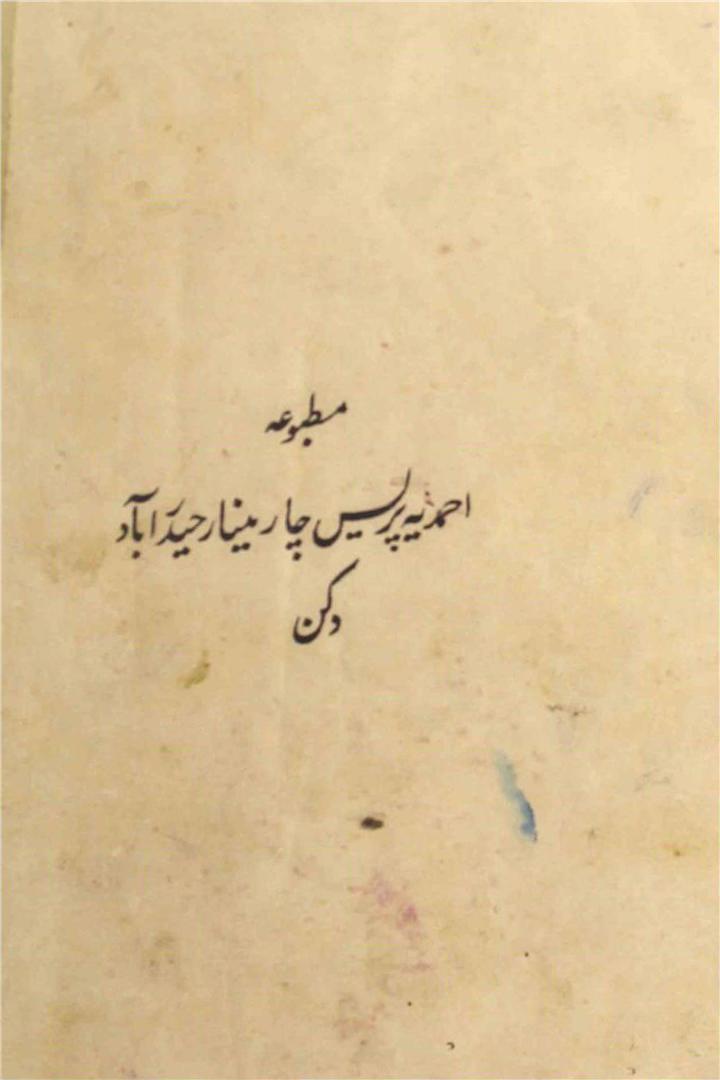 مطبوعہ
احمدیہ پریس چار مینار حیدرآباد
دکن